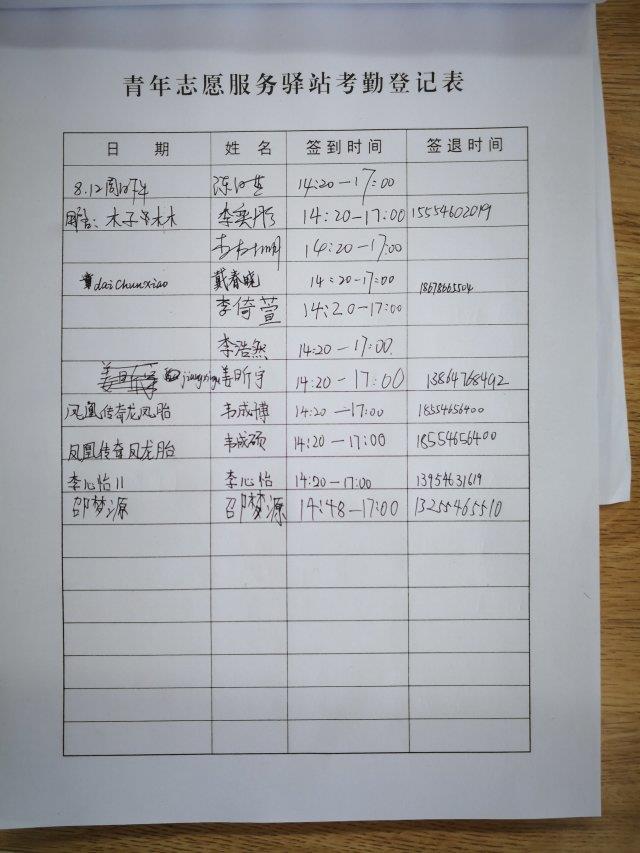 青年志愿服务驿站考勤登记表
日 期 姓 名 签到时间 签退时间
8.12周日下午 14:20—17:00
木子 木木 李奕彤 14:20—17:00 15554602019
14:20—17:00
daichunxiao 戴春晓 14:20—17:00 18678665504
李倚萱 14:20—17:00
李浩然 14:20—17:00.
姜昕宇 14:20—17:00 13864768492
凤凰传奇龙凤胎 韦成博 14:20—17:00 18554656400
凤凰传奇凤龙胎 韦成硕 14:20—17:00 18554656400
李心怡11 李心怡 14:20—17:00 13954631619
邵梦源 邵梦源 14:48—17:00 13255465510